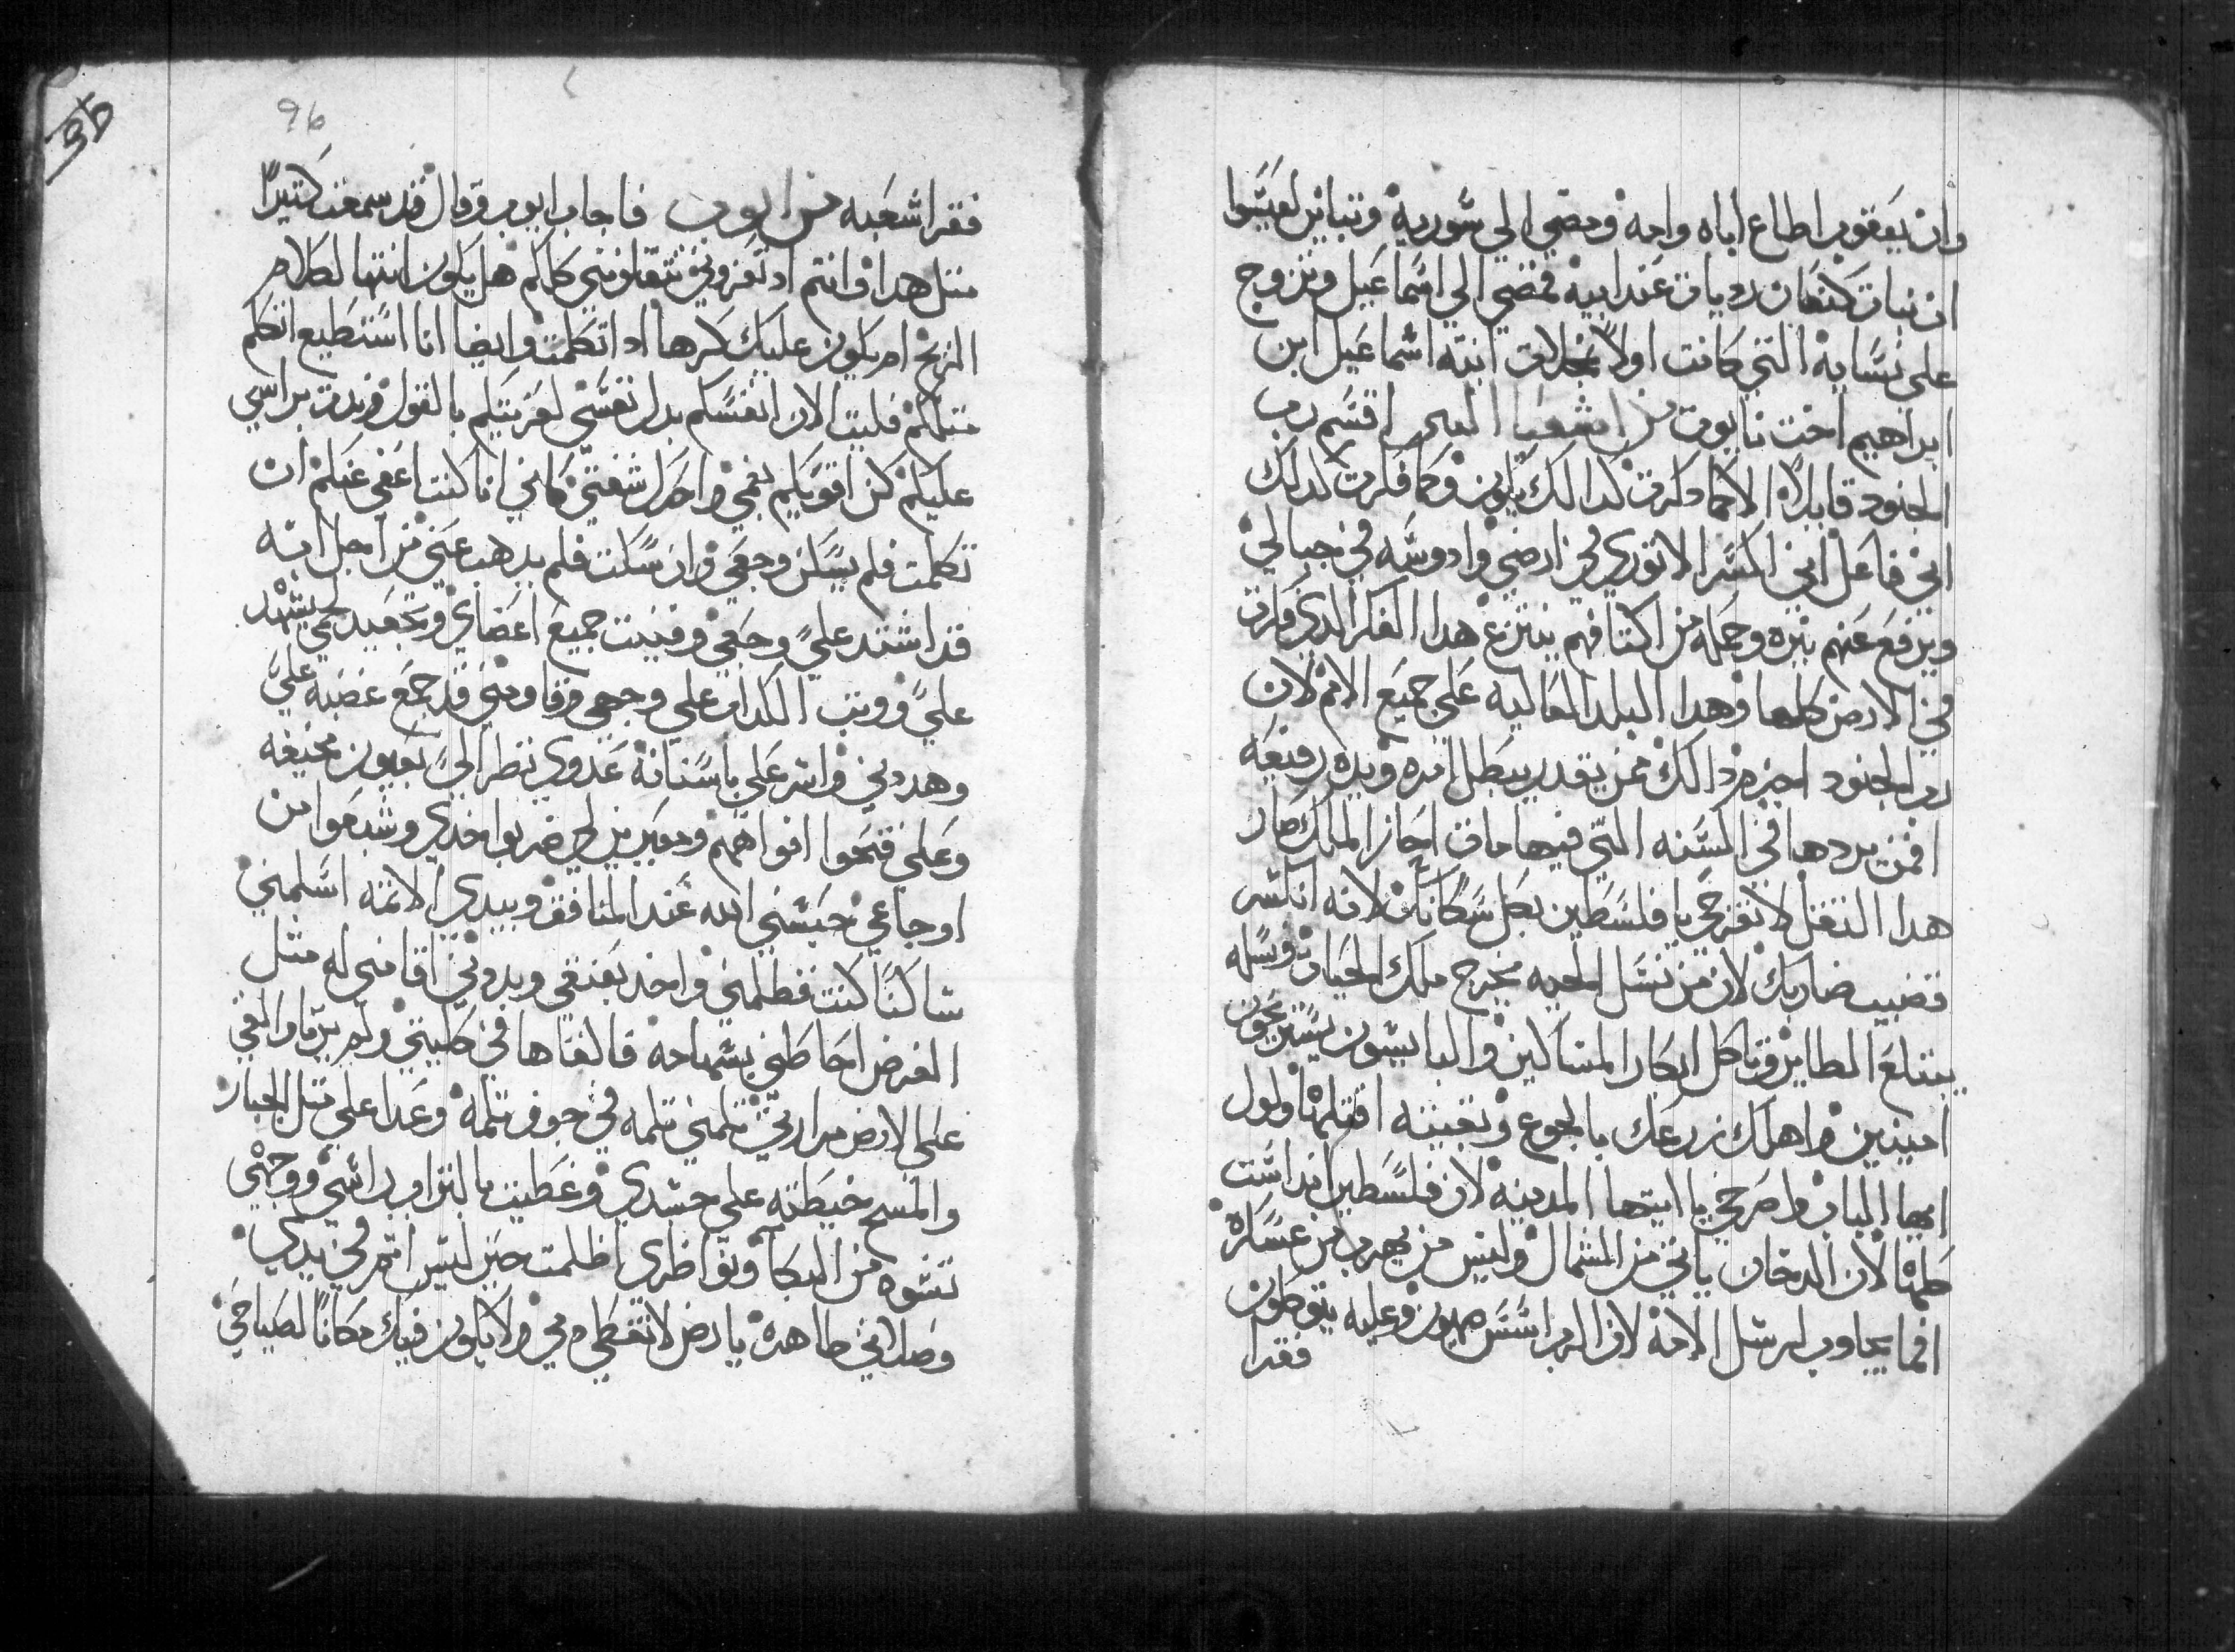 وان يعقوب اطاع اباه وامه ومضي الي سورية وتباين لعيسوا
ان بنات كنعان رديات عند ابيه فمضي الي اسماعيل وتزوج
على نسايه التي كانت اولا بمحلات ابنته اسماعيل ابن
ابراهيم اخت نابوت من اشعيا النبي اقسم رب
الجنود قايلاً الا كما دكرت كدالك يكون وكما فكرت كدالك
اني فاعل اني اكسر الاتوري في ارضي وادوسه في جبالي
ويرفع عنهم نيره وحمله من اكتافهم ينتزع هدا الفكر الدي فكرت
في الارض كلها وهدا اليد العاليه على جميع الامم لان
رب الجنود اجزم دالك فمن يقدر يبطل امره ويده رفيعه
افمن يردها في السنه التي فيها مات احاز الملك صار
هدا التقل لا تفرحي يا فلسطين بكل سكانك لانه انكسر
قضيب ضاربك لان من نسل الحيه يخرج ملك الحيات ونسله
يبتلع الطاير وتاكل ابكار المساكين والبايسون يستريحون
امينين واهلك زرعك بالجوع وتقيته اقتلها ولول
ايها الباب واصرخي يا ايتها المدينه لان فلسطين انداست
كلها لان الدخان ياتي من الشمال وليس من يهرب من عساكره
فما يجاوب لرسل الامة لان الرب اسس صهيون وعليه يتوكلون
فقرا
96
فقرا شعبه من ايوب فاجاب ايوب وقال قد سمعت كتيراً
متل هدا وانتم اد تعزوني تتقلونني كلكم هل يكون انتها لكلام
الريح ام يكون عليك كرها اد اتكلمت وايضا انا استطيع اتكلم
متلكم فليت الان انفسكم بدل نفسي لعزيتكم بالقول وزيدت براسي
عليكم كن اقويكم بفمي واحرك شفتي كاني انا كنت اعفي عنكم ان
تكلمت فلم يسكن وجعي وان سكت فلم يدهب عني من اجل انه
قد اشتد علي وجعي وفنيت جميع اعضاي وتجعيد لحمي يشهد
علي ووتب الكداب علي وجهي وقاومني قد جمع غضبه علي
وهددني وصر علي باسنانه عدوي نظر الي بعيون مخيفه
وعلى فتحوا افواههم ومعيرين لي ضربوا خدي وشبعوا من
اوجاعي حبسني الله عند المنافق وبيدي الاتمه اسلمني
ساكنا كنت فطلمني واخد بعنقي وبددني اقامني له متل
الغرض احاطني بسهامه فالقاها في كليتي ولم يرتا والقي
على الارض مرارتي تلمني تلمه في جوف تلمه وعدا علي متل الجبار
والمسح خيطته علي جسدي وغطيت بالتراب راسي ووجهي
تشوه من البكاء ونواظري اظلمت حين ليس اتم في يدي
وصلاتي طاهره يا ارض لا تغطي دمي ولا يكون فيك مكانا لصياحي